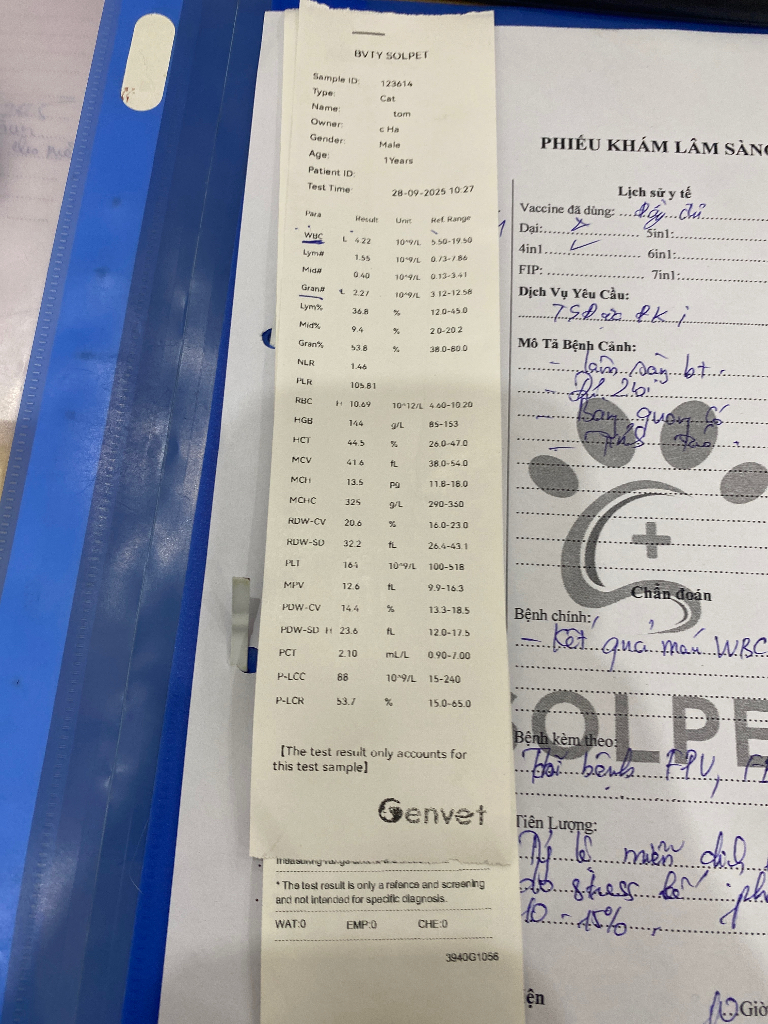 BVTY SOLPET
Sample ID: 123614
Type: Cat
Name: tom
Owner: c Ha
Gender: Male
Age: 1Years
Patient ID:
Test Time: 28-09-2025 10:27
Para Result Unit Ref. Range
WBC L 4.22 10^9/L 5.50-19.50
Lym# 1.55 10^9/L 0.73-7.86
Mid# 0.40 10^9/L 0.13-3.41
Gran# L 2.27 10^9/L 3.12-12.58
Lym% 36.8 % 12.0-45.0
Mid% 9.4 % 2.0-20.2
Gran% 53.8 % 38.0-80.0
NLR 1.46
PLR 105.81
RBC H 10.69 10^12/L 4.60-10.20
HGB 144 g/L 85-153
HCT 44.5 % 26.0-47.0
MCV 41.6 fL 38.0-54.0
MCH 13.5 pg 11.8-18.0
MCHC 325 g/L 290-350
RDW-CV 20.6 % 16.0-23.0
RDW-SD 32.2 fL 26.4-43.1
PLT 164 10^9/L 100-518
MPV 12.6 fL 9.9-16.3
PDW-CV 14.4 % 13.3-18.5
PDW-SD H 23.6 fL 12.0-17.5
PCT 2.10 mL/L 0.90-7.00
P-LCC 88 10^9/L 15-240
P-LCR 53.7 % 15.0-65.0
【The test result only accounts for
this test sample】
Genvet
* The test result is only a refence and screening
and not intended for specific diagnosis.
WAT:0 EMP:0 CHE:0
3940G1056
PHIẾU KHÁM LÂM SÀNG
Lịch sử y tế
Vaccine đã dùng: đầy đủ
Dại: 5in1:
4in1 ✓ 6in1:
FIP: 7in1:
Dịch Vụ Yêu Cầu:
Mô Tả Bệnh Cảnh:
- lâm sàng bt.
Chẩn đoán
Bệnh chính:
- Kết quả máu WBC
SOLPE
Bệnh kèm theo:
bệnh FPV,
Tiên Lượng:
Tỷ lệ miễn dịch
do stress
10 - 15%
ện
Giờ